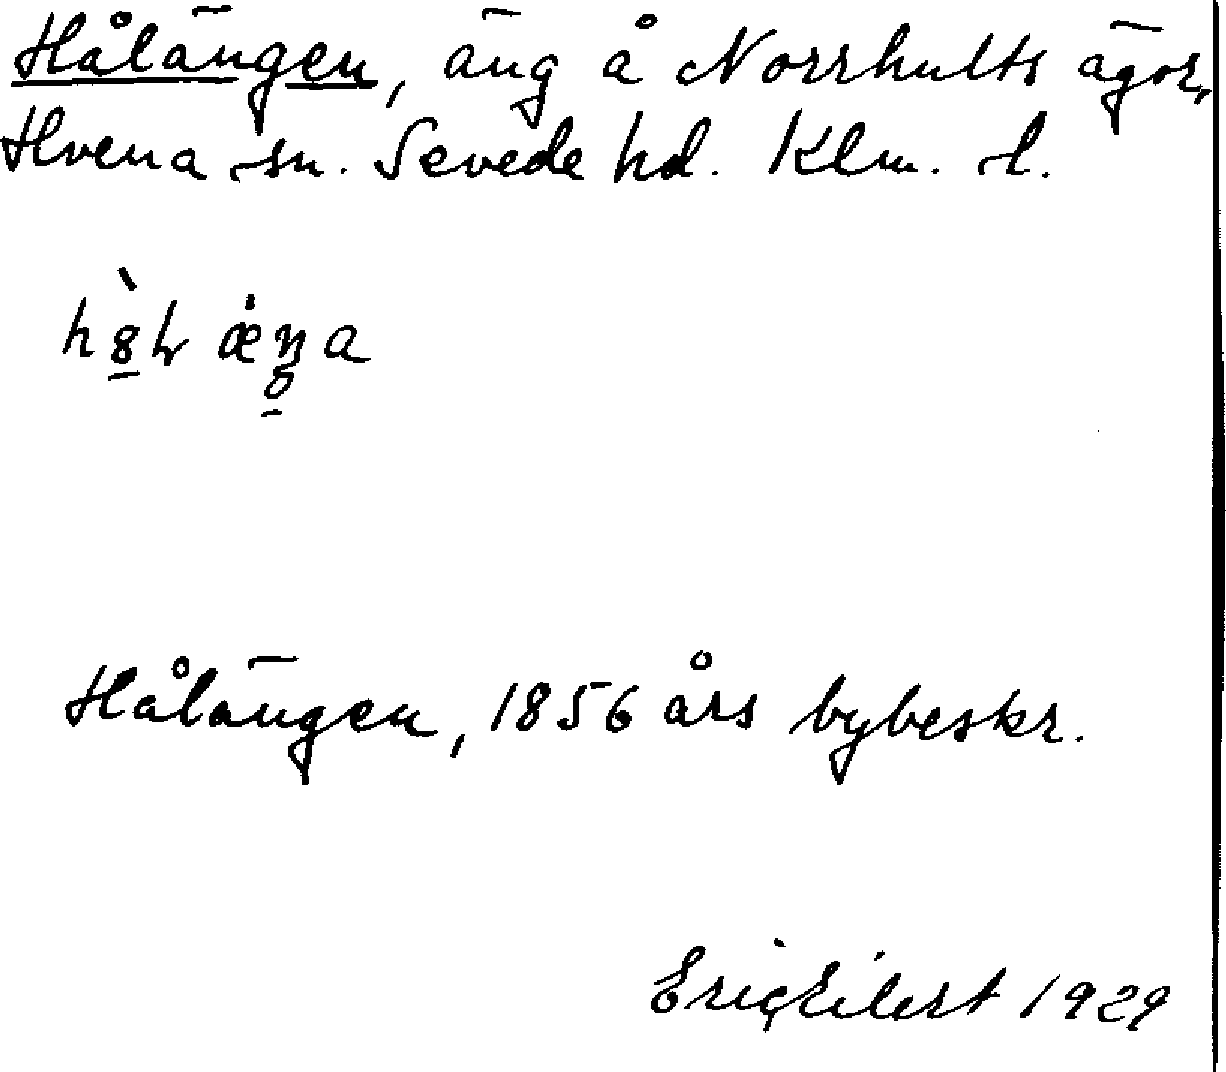 Hålängen, äng å Norrhults ägor,
Hvena sn. Sevede hd. Klm. l.
Hålängen, 1856 års bybeskr.
Eric Eilert 1929